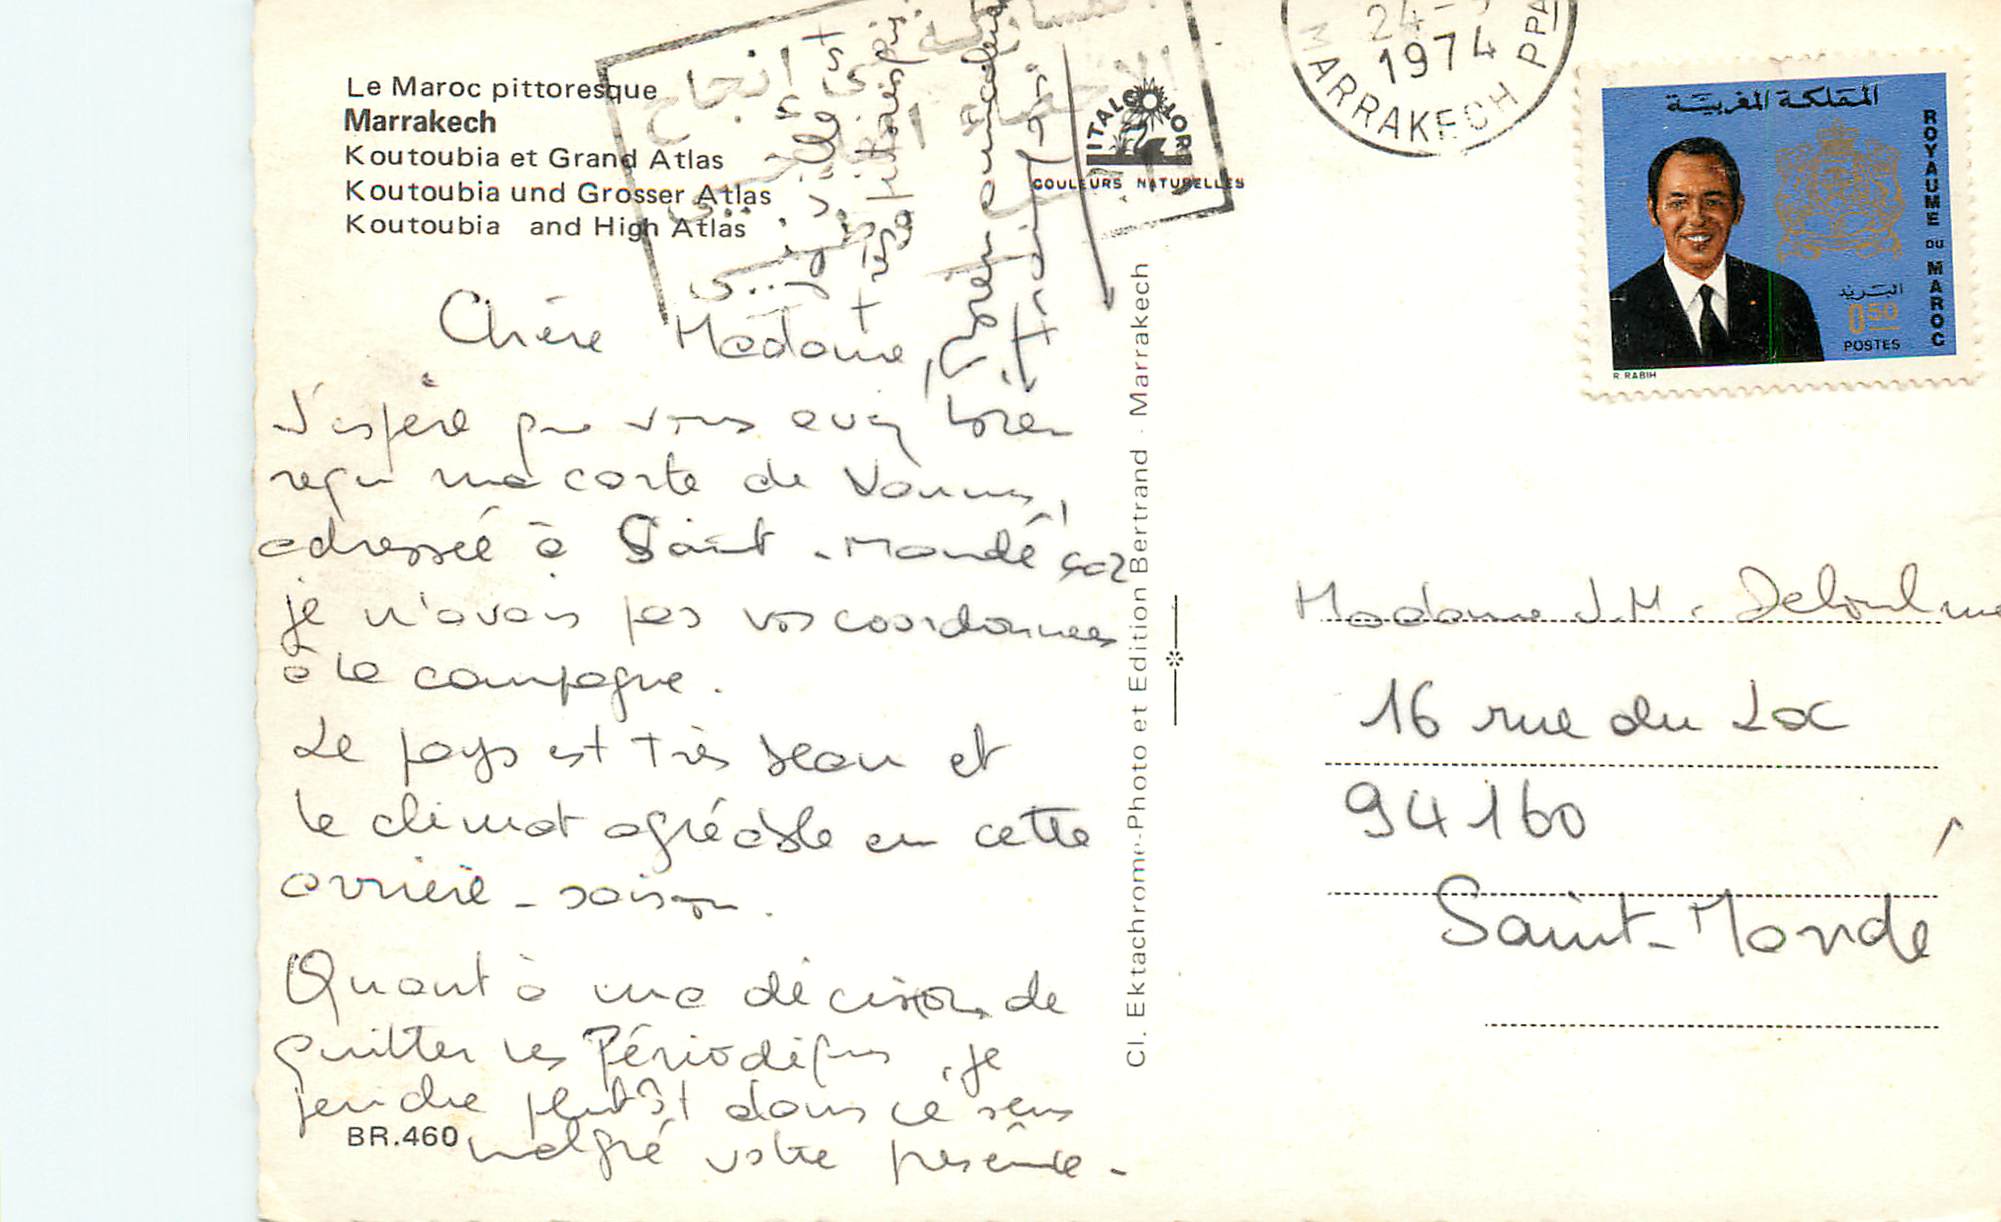 Le Maroc pittoresque
Marrakech
Koutoubia et Grand Atlas
Koutoubia und Grosser Atlas
Koutoubia and High Atlas
ITALCOLOR
COULEURS NATURELLES
24-
1974
MARRAKECH PPAL
المملكة المغربية
ROYAUME DU MAROC
البريد
0.50
POSTES
R. RABIH
Chère Madame,
J'espère que vous avez bien
reçu ma carte de Vannes,
adressée à Saint-Mandé car
je n'avais pas vos coordonnées
à la campagne.
Le pays est très beau et
le climat agréable en cette
arrière-saison.
Quant à ma décision de
quitter les Périodiques, je
penche plutôt dans ce sens
malgré votre présence.
La ville est
très pittoresque.
Bien amicalement
BR.460
Cl. Ektachrome-Photo et Edition Bertrand - Marrakech
Madame J.M.
16 rue du Lac
94160
Saint-Mandé